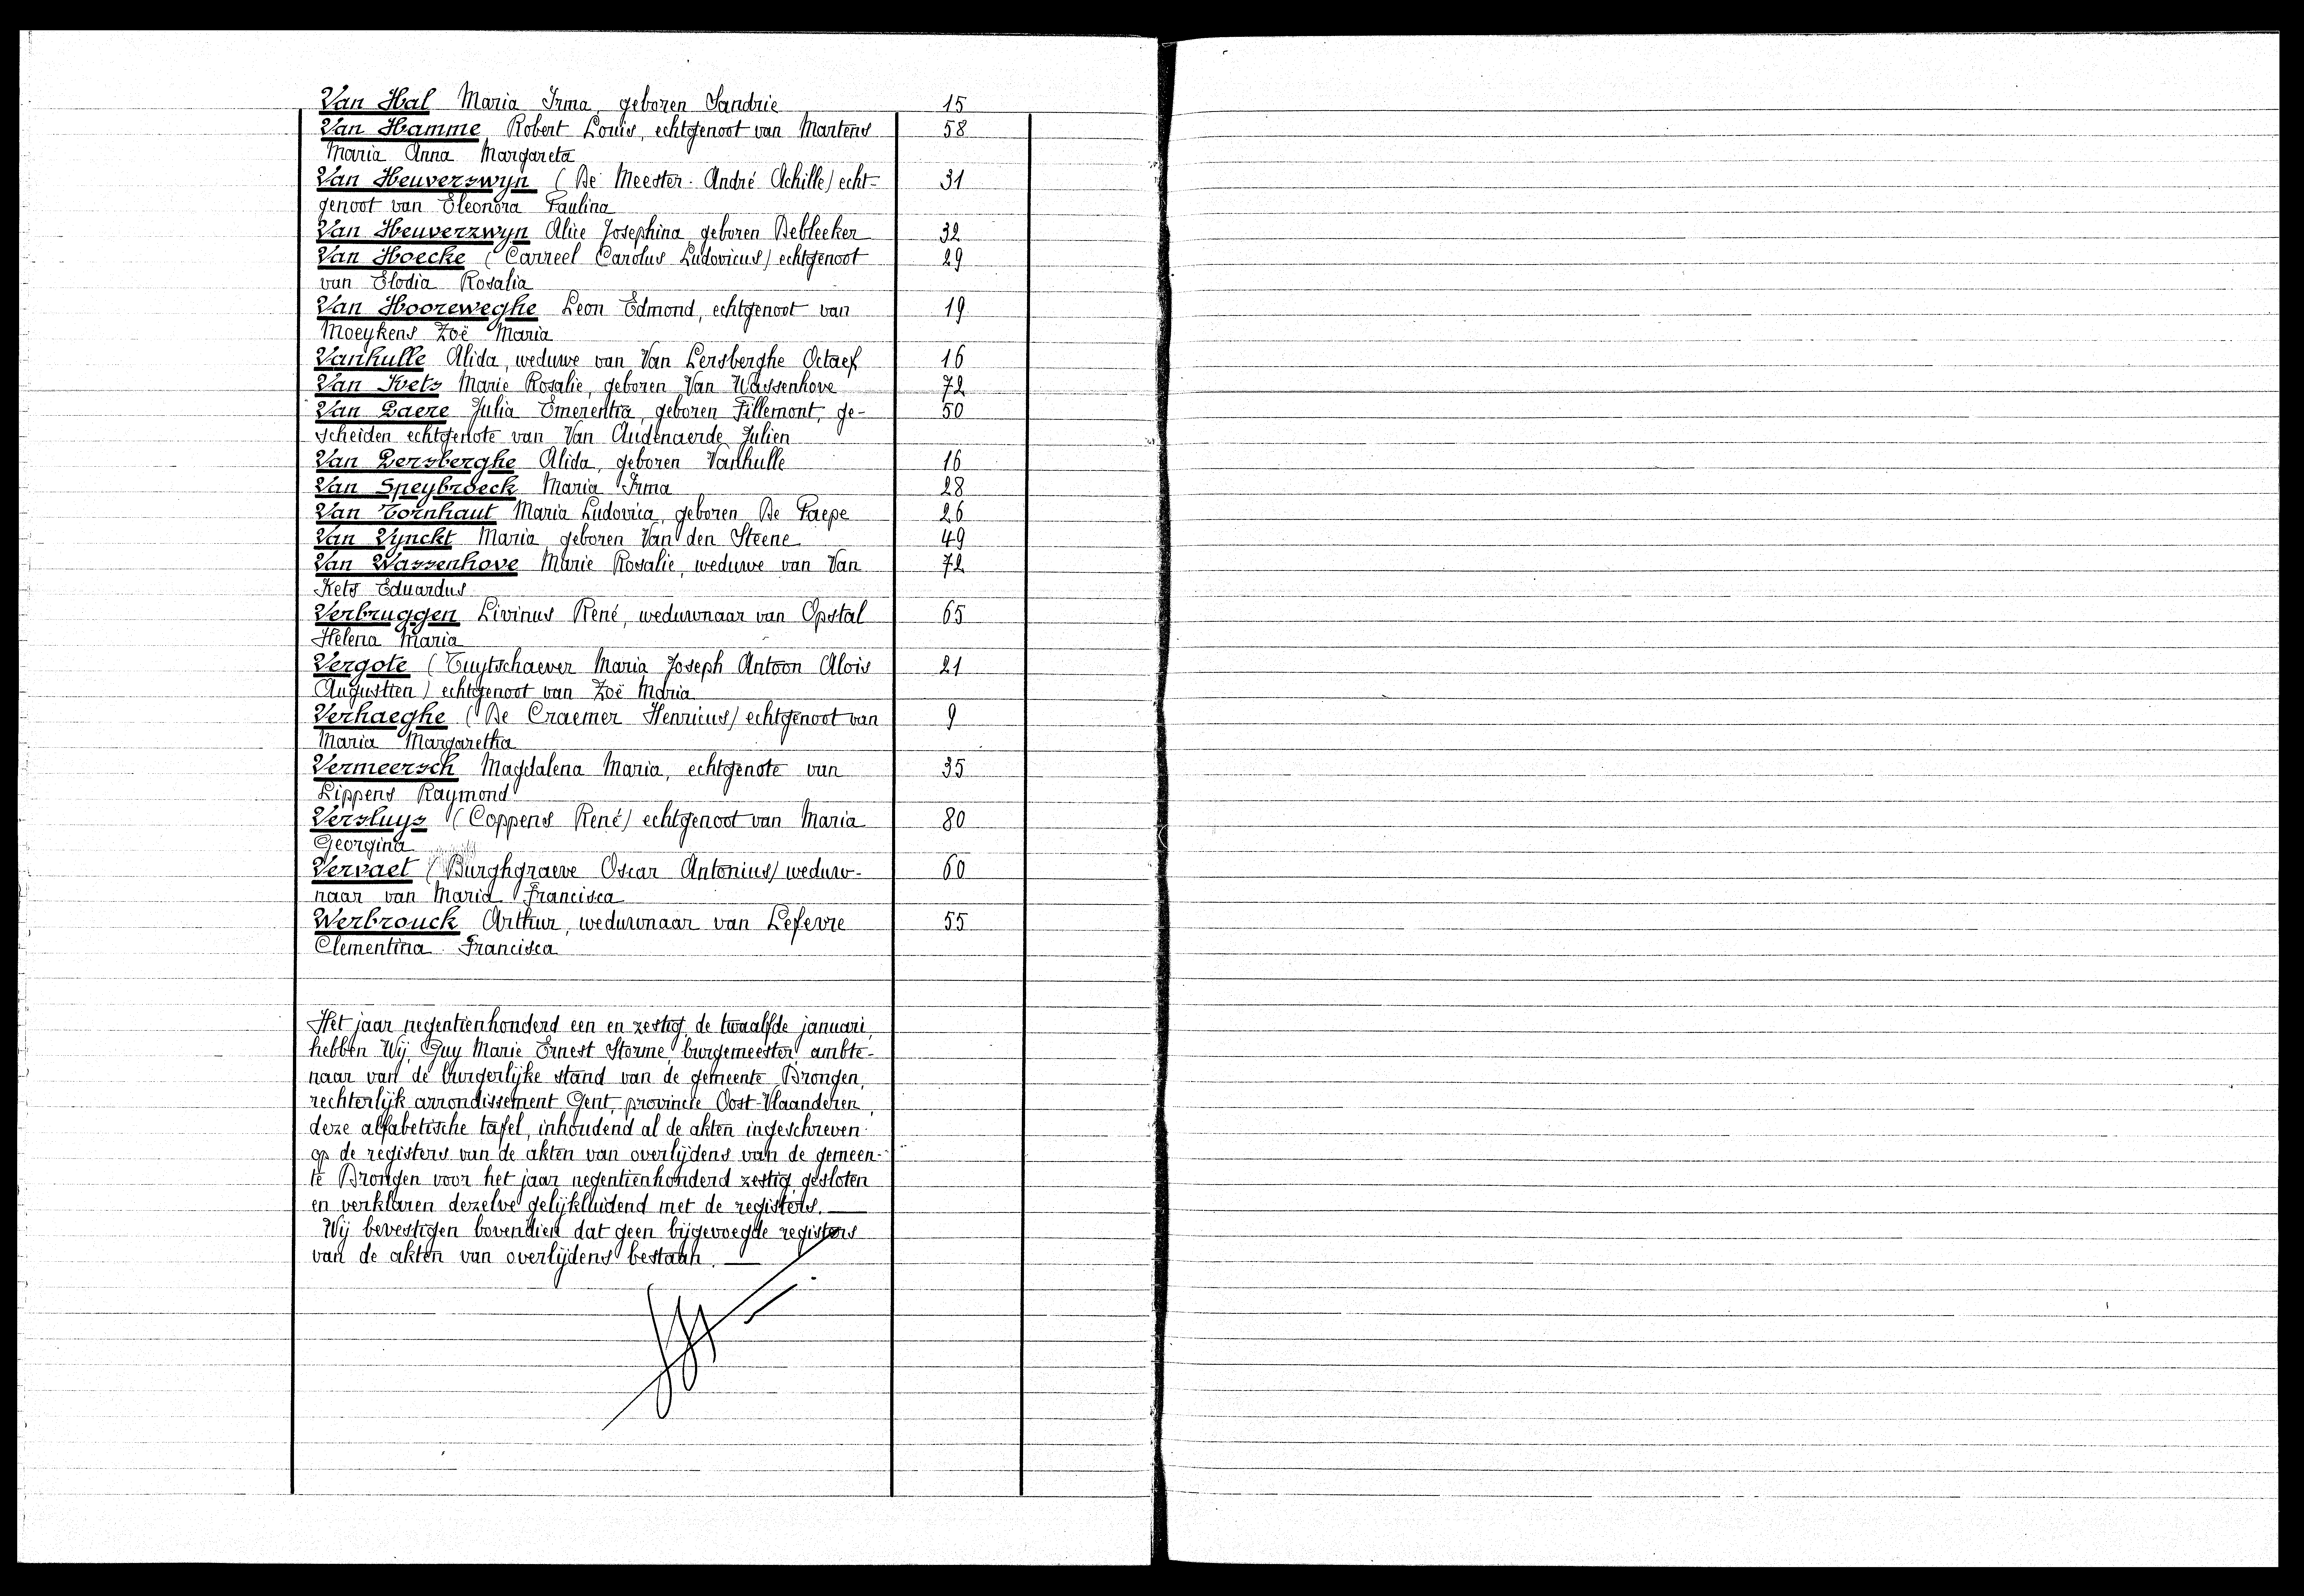 Van Hal Maria Irma, geboren Sandrie 15
Van Hamme Robert Louis, echtgenoot van Martens 58
Maria Anna Margareta
Van Heuverswyn (De Meester André Achille) echt- 31
genoot van Eleonora Paulina
Van Heuverzwyn Alice Josephina geboren Debleeker 32
Van Hoecke (Carreel Carolus Ludovicus) echtgenoot 29
van Elodia Rosalia
Van Hooreweghe Leon Edmond, echtgenoot van 19
Moeykens Zoë Maria
Vanhulle Alida, weduwe van Van Lersberghe Octaef 16
Van Kets Marie Rosalie, geboren Van Wassenhove 72
Van Laere Julia Emerentia, geboren Fillemont, ge- 50
scheiden echtgenote van Van Audenaerde Julien
Van Lersberghe Alida, geboren Vanhulle 16
Van Speybroeck Maria Irma 28
Van Tornhaut Maria Ludovica, geboren De Paepe 26
Van Vynckt Maria geboren Van den Steene 49
Van Wassenhove Marie Rosalie, weduwe van Van 72
Kets Eduardus
Verbruggen Livinus René, weduwnaar van Opstal 65
Helena Maria
Vergote (Tuytschaever Maria Joseph Antoon Alois 21
Augustien) echtgenoot van Zoë Maria
Verhaeghe (De Craemer Henricus) echtgenoot van 9
Maria Margaretha
Vermeersch Magdalena Maria, echtgenote van 35
Lippens Raymond
Versluys (Coppens René) echtgenoot van Maria 80
Georgina
Vervaet (Burghgraeve Oscar Antonius) weduw- 60
naar van Maria Francisca
Werbrouck Arthur, weduwnaar van Lefevre 55
Clementina Francisca
Het jaar negentienhonderd een en zestig, de twaalfde januari,
hebben Wij, Guy Marie Ernest Storme, burgemeester, ambte-
naar van de burgerlijke stand van de gemeente Drongen,
rechterlijk arrondissement Gent, provincie Oost-Vlaanderen,
deze alfabetische tafel, inhoudend al de akten ingeschreven
op de registers van de akten van overlijdens van de gemeen-
te Drongen voor het jaar negentienhonderd zestig, gesloten
en verklaren dezelve gelijkluidend met de registers.
Wij bevestigen bovendien dat geen bijgevoegde registers
van de akten van overlijdens bestaan.